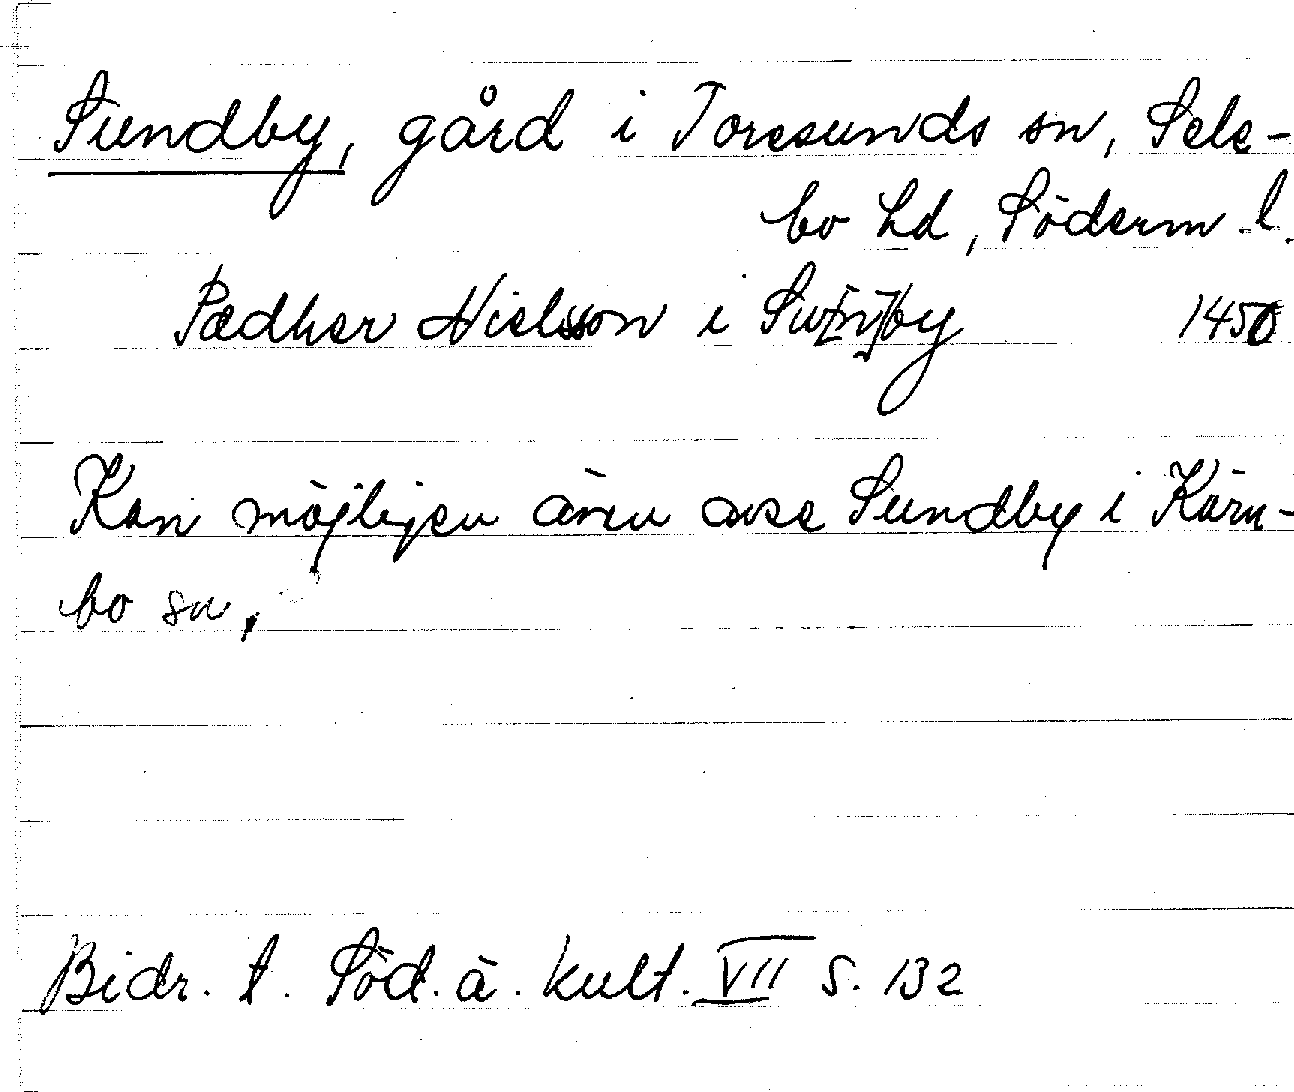 Sundby, gård i Toresunds sn, Sele-
bo hd, Söderm. l.
Pædher Nielsson i Sw[n]by 1450
Kan möjligen även avse Sundby i Kärn-
bo sn.
Bidr. t. Söd. ä. kult. VII s. 132